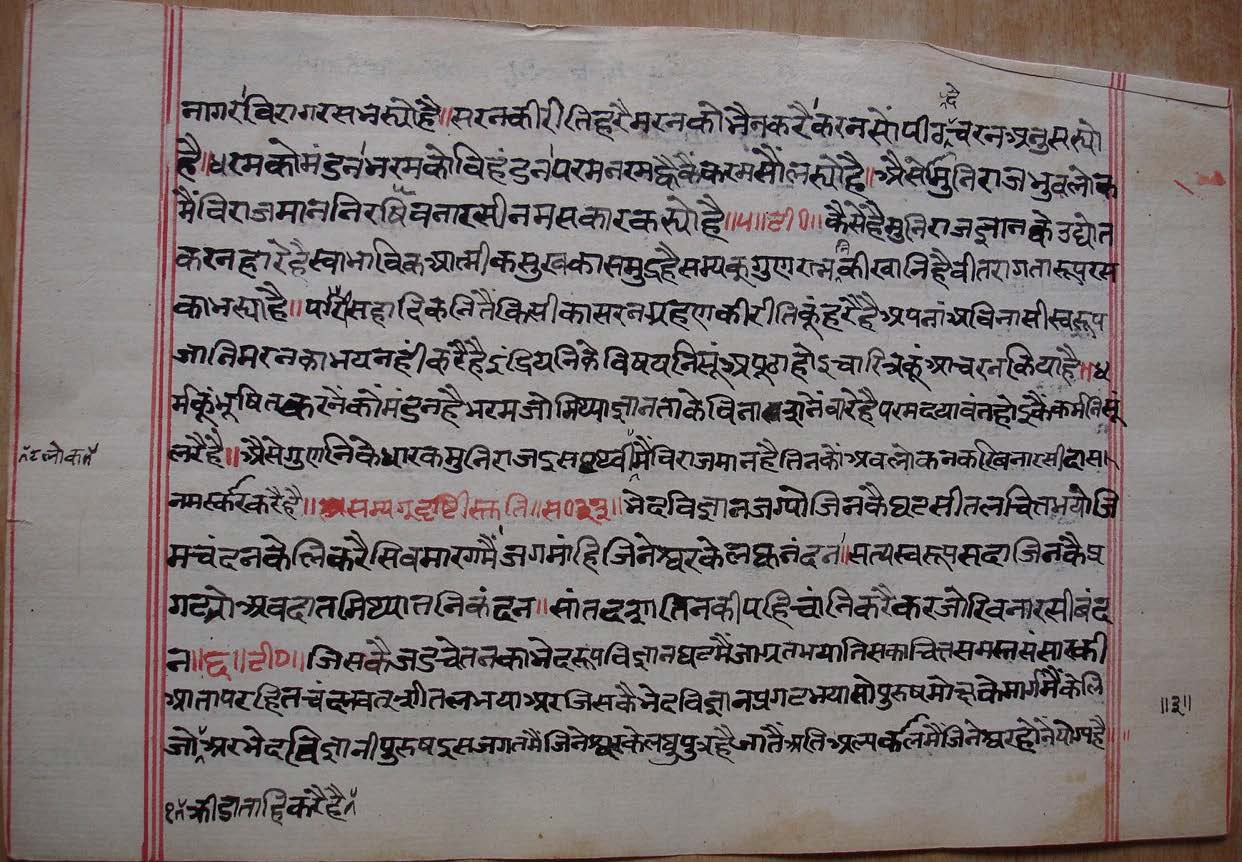 नागर विरागरस भर्यो है॥ सरन की रीति हरै मरन कौ भै न करै करन सौं पीठि दे चरन अनुसर्यो
है॥ धरम को मंडन भरम को विहंडन परम नरम ह्वैकैं करम सौं लर्यो है॥ अैसे मुनिराज भुवलोक
मैं विराजमान निरषि बनारसी नमसकार कर्यो है॥५॥टी०॥ कैसे है मुनिराज ज्ञान के उद्योत
करनहारे है स्वाभाविक आत्मीक सुख का समुद्र है सम्यक् गुण रत्ननि की खानि है वीतरागतारूप रस
का भर्या है॥ परीसहादिकनितैं किसी का सरन ग्रहण की रीतिकूं हरै है अपनां अविनासी स्वरूप
जानि मरन का भय नहीं करै है इंद्रियनिके विषयनिसूं अपूठा होइ चारित्रकूं आचरन किया है॥ ध
र्मकूं भूषित करनेंकों मंडन है भरम जो मिथ्याज्ञान ताके विनाशनेंवारे है परम दयावंत होइकैं कर्मनिसू
लरै है॥ अैसे गुणनिके धारक मुनिराज इस पृथ्वी मैं विराजमान है तिनकों अवलोकन करि बनारसीदास
नमस्कार करै है॥ सम्यग्दृष्टीस्तुति॥ स०२३॥ भेदविज्ञान जग्यो जिनकै घट सीतल चित्त भयो जि
म चंदन केलि करै सिवमारगमैं जगमांहि जिनेश्वर के लघुनंदन॥ सत्यस्वरूप सदा जिनकै प्र
गट्यो अवदात मिथ्यात निकंदन॥ सांतदशा तिनकी पहिचांनि करै कर जोरि बनारसी बंद
न॥६॥टी०॥ जिसकै जड चेतन का भेदरूप विज्ञान घटमैं जाग्रत भया तिसका चित्त समस्त संसार की
आताप रहित चंदनवत् शीतल भया अर जिसकै भेदविज्ञान प्रगट भया सो पुरुष मोक्षके मार्गमैं केलि
जो अर भेदविज्ञानी पुरुष इस जगतमैं जिनेश्वरके लघुपुत्र है जातैं अति अल्पकालमैं जिनेश्वर होनें योग्य है॥
१ क्रीडा ताहि करै है
॥३॥